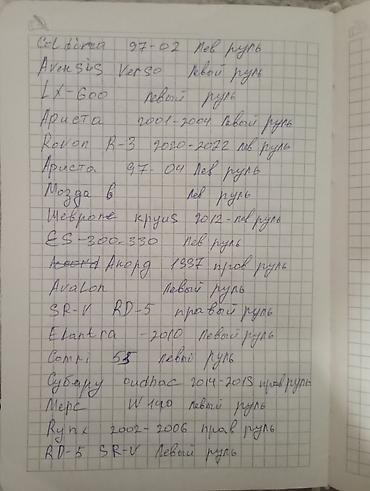 Celдiка 97-02 Лев руль
Avensis Verso Левый руль
LX-600 левый руль
Ариста 2001-2004 Левый руль
Ravon R-3 2020-2022 лев руль
Ариста 97-04 Лев руль
Мозда 6 Лев руль
Шевроле круиз 2012-лев руль
ES-300-330 Лев руль
Акорд 1997 прав руль
Avalon Левый руль
SR-V RD-5 правый руль
Elantra -2010 Левый руль
Comri 55 левый руль
Субару 2014-2015 прав руль
Мерс W140 левый руль
2002-2006 прав руль
RD-5 SR-V Левый руль